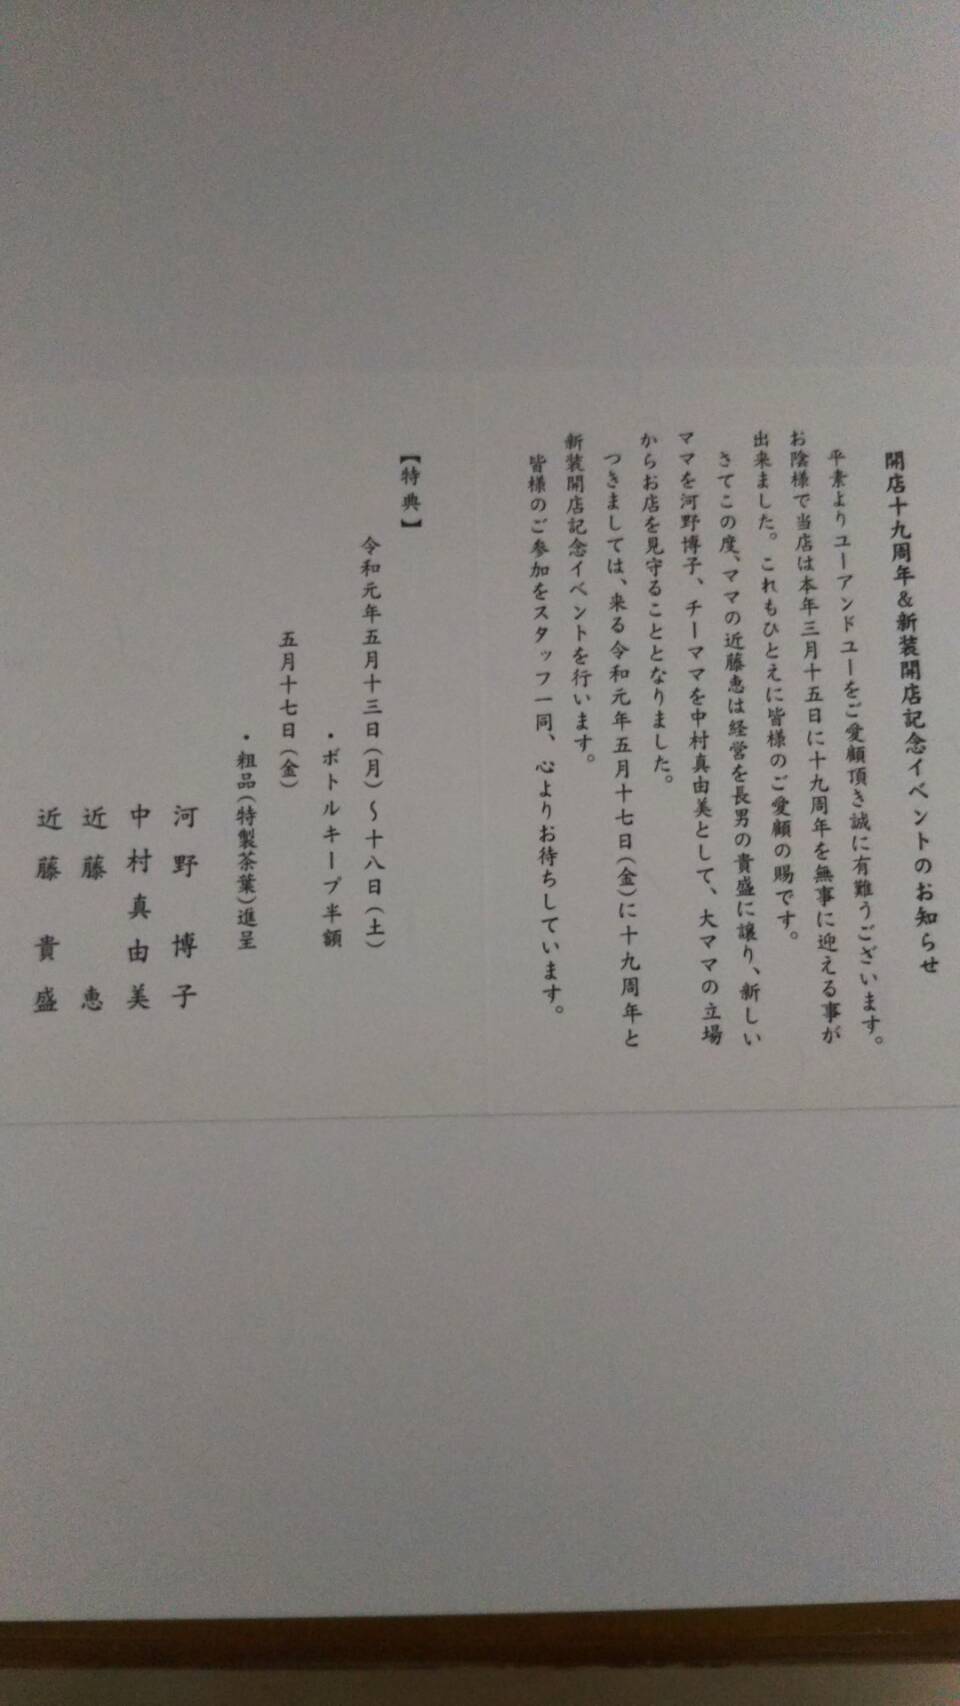 開店十九周年&新装開店記念イベントのお知らせ
平素よりユーアンドユーをご愛顧頂き誠に有難うございます。
お陰様で当店は本年三月十五日に十九周年を無事に迎える事が
出来ました。これもひとえに皆様のご愛顧の賜です。
さてこの度、ママの近藤恵は経営を長男の貴盛に譲り、新しい
ママを河野博子、チーママを中村真由美として、大ママの立場
からお店を見守ることとなりました。
つきましては、来る令和元年五月十七日(金)に十九周年と
新装開店記念イベントを行います。
皆様のご参加をスタッフ一同、心よりお待ちしています。
【特典】
令和元年五月十三日(月)〜十八日(土)
・ボトルキープ半額
五月十七日(金)
・粗品(特製茶葉)進呈
河野 博子
中村真由美
近藤 恵
近藤 貴盛